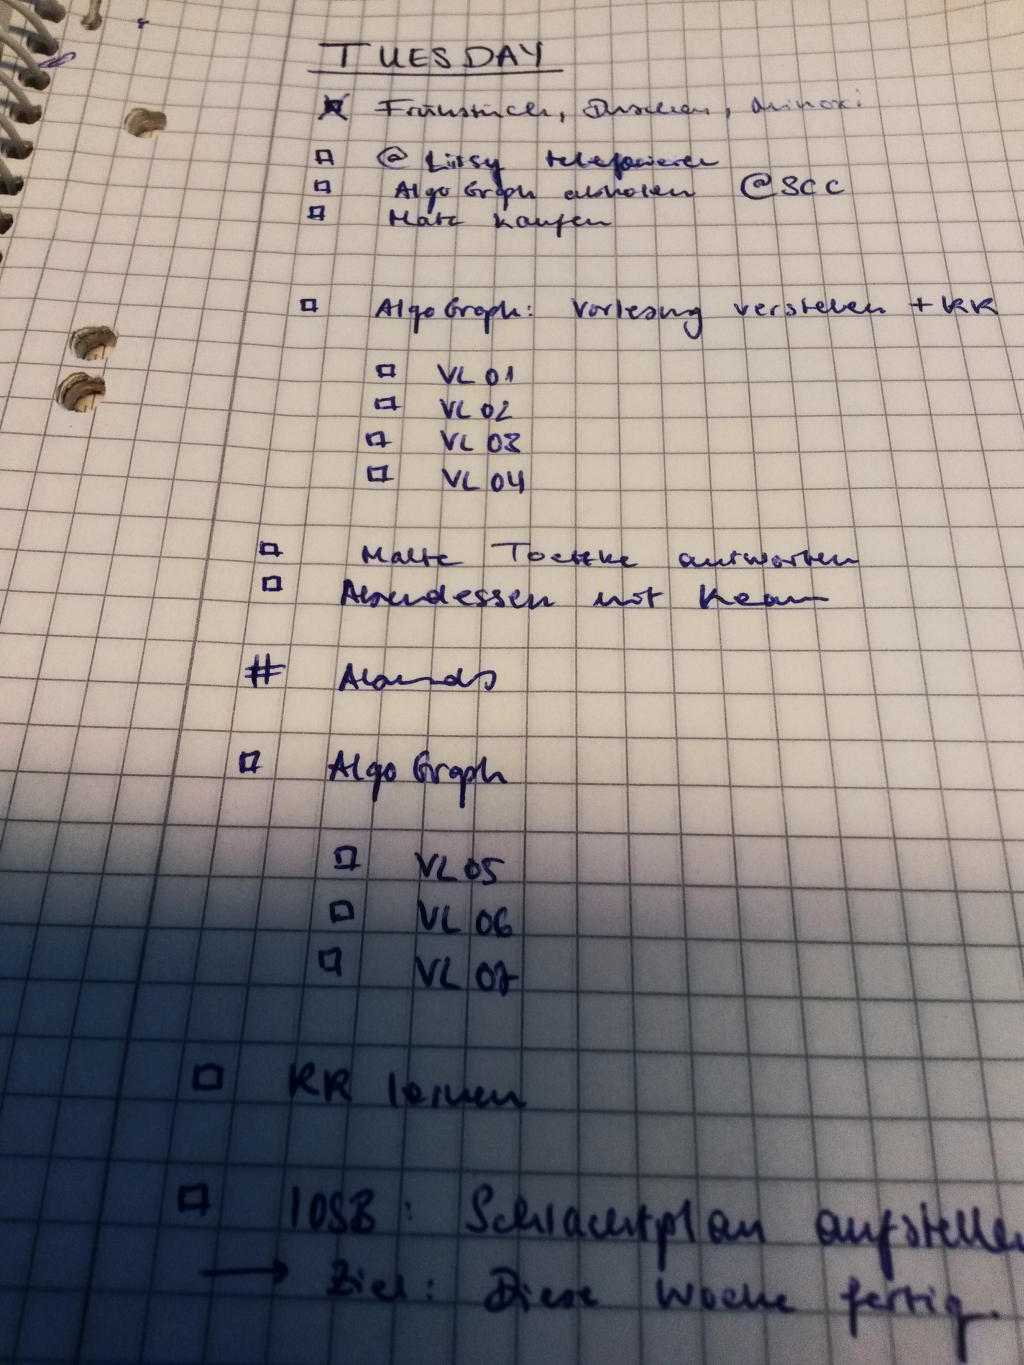 TUESDAY
Frühstück, Duschen,
@ Lissy telefonieren
Algo Graph abholen @SCC
Mate kaufen
Algo Graph: Vorlesung verstehen + KK
VL 01
VL 02
VL 03
VL 04
Malte antworten
Abendessen mit
# Abends
Algo Graph
VL 05
VL 06
VL 07
KK lernen
IOSB: Schlachtplan aufstellen
→ Ziel: Diese Woche fertig.